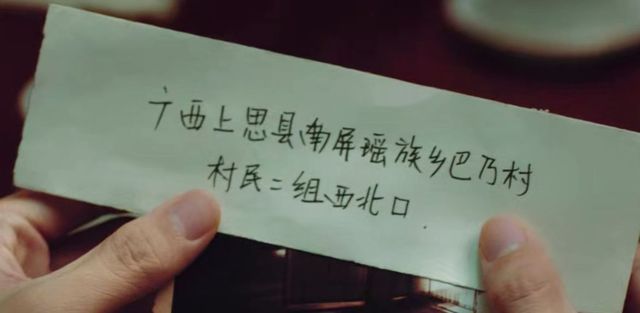 广西上思县南屏瑶族乡巴乃村
村民二组西北口.